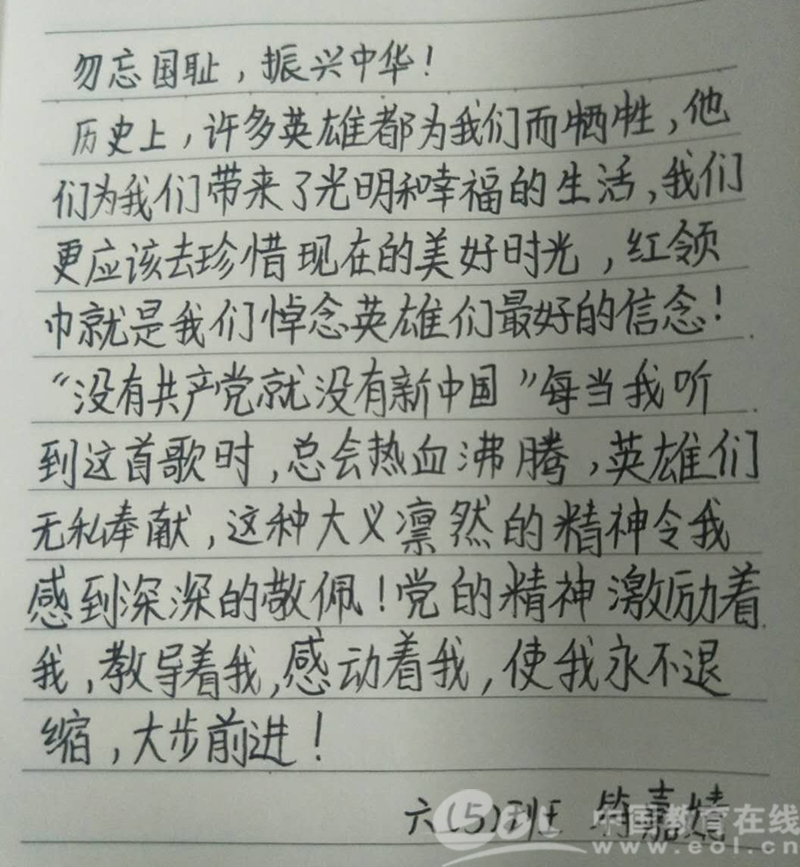 勿忘国耻，振兴中华！
历史上，许多英雄都为我们而牺牲，他
们为我们带来了光明和幸福的生活，我们
更应该去珍惜现在的美好时光，红领
巾就是我们悼念英雄们最好的信念！
“没有共产党就没有新中国”每当我听
到这首歌时，总会热血沸腾，英雄们
无私奉献，这种大义凛然的精神令我
感到深深的敬佩！党的精神激励着
我，教导着我，感动着我，使我永不退
缩，大步前进！
六(5)班 符嘉婧
中国教育在线
www.eol.cn